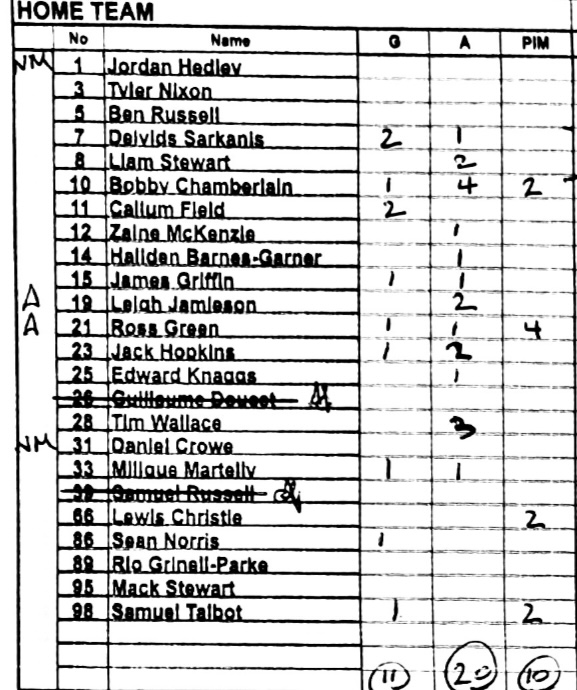 HOME TEAM
No Name G A PIM
NM 1 Jordan Hedley
3 Tyler Nixon
5 Ben Russell
7 Deivids Sarkanis 2 1
8 Liam Stewart 2
10 Bobby Chamberlain 1 4 2
11 Callum Field 2
12 Zaine McKenzie 1
14 Hallden Barnes-Garner 1
15 James Griffin 1 1
A 19 Leigh Jamieson 2
A 21 Ross Green 1 1 4
23 Jack Hopkins 1 2
25 Edward Knaggs 1
26 Guillaume Doucet
28 Tim Wallace 3
NM 31 Daniel Crowe
33 Milique Martelly 1 1
39 Samuel Russell
66 Lewis Christie 2
86 Sean Norris 1
89 Rio Grinell-Parke
95 Mack Stewart
98 Samuel Talbot 1 2
11 20 10